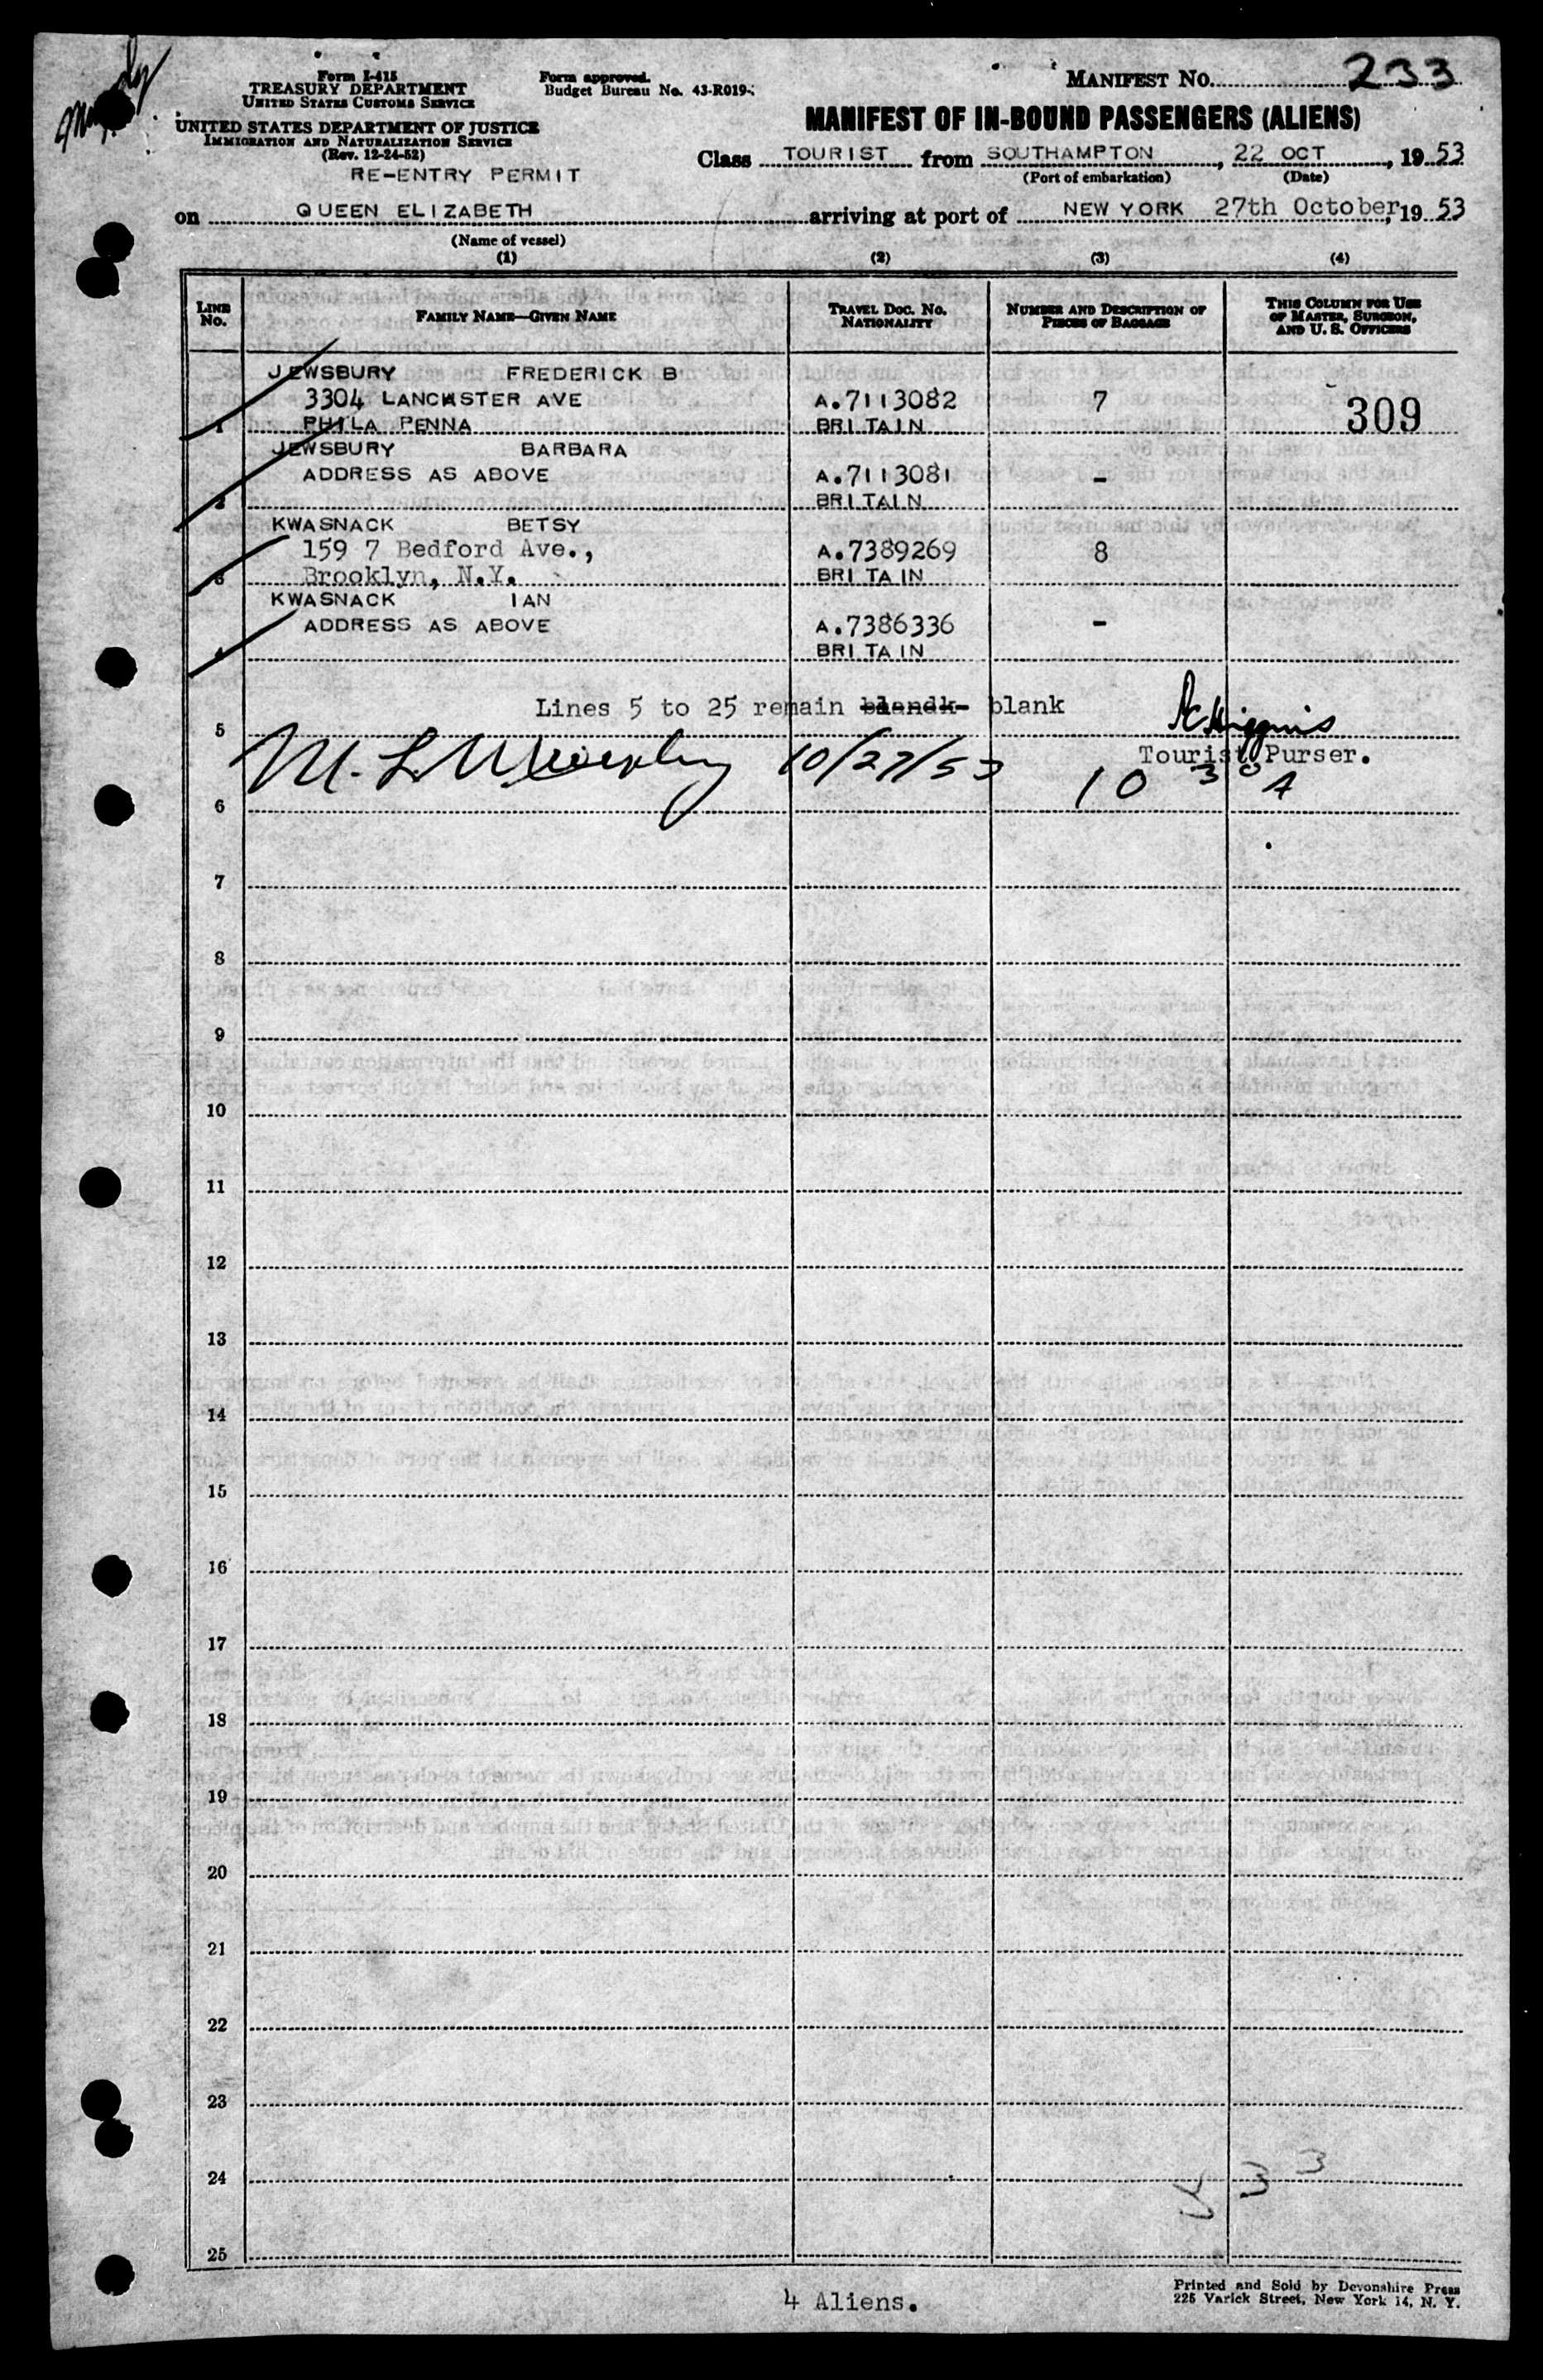 Form I-415
TREASURY DEPARTMENT
UNITED STATES CUSTOMS SERVICE
UNITED STATES DEPARTMENT OF JUSTICE
IMMIGRATION AND NATURALIZATION SERVICE
(Rev. 12-24-52)
RE-ENTRY PERMIT
Form approved.
Budget Bureau No. 43-R019-
MANIFEST NO. 233
MANIFEST OF IN-BOUND PASSENGERS (ALIENS)
Class TOURIST from SOUTHAMPTON, 22 OCT, 1953
(Port of embarkation) (Date)
on QUEEN ELIZABETH arriving at port of NEW YORK 27th October, 1953
(Name of vessel)
(1) (2) (3) (4)
LINE NO. FAMILY NAME—GIVEN NAME TRAVEL DOC. NO. NATIONALITY NUMBER AND DESCRIPTION OF PIECES OF BAGGAGE THIS COLUMN FOR USE OF MASTER, SURGEON, AND U. S. OFFICERS
JEWSBURY FREDERICK B
3304 LANCASTER AVE A.7113082 7 309
1 PHILA PENNA BRITAIN
JEWSBURY BARBARA
ADDRESS AS ABOVE A.7113081 -
2 BRITAIN
KWASNACK BETSY
159 7 Bedford Ave., A.7389269 8
3 Brooklyn, N.Y. BRITAIN
KWASNACK IAN
ADDRESS AS ABOVE A.7386336 -
4 BRITAIN
Lines 5 to 25 remain blandk- blank
5
Tourist Purser.
M. L. 10/27/53 10 30 A
6
7
8
9
10
11
12
13
14
15
16
17
18
19
20
21
22
23
24
25
4 Aliens.
Printed and Sold by Devonshire Press
225 Varick Street, New York 14, N. Y.